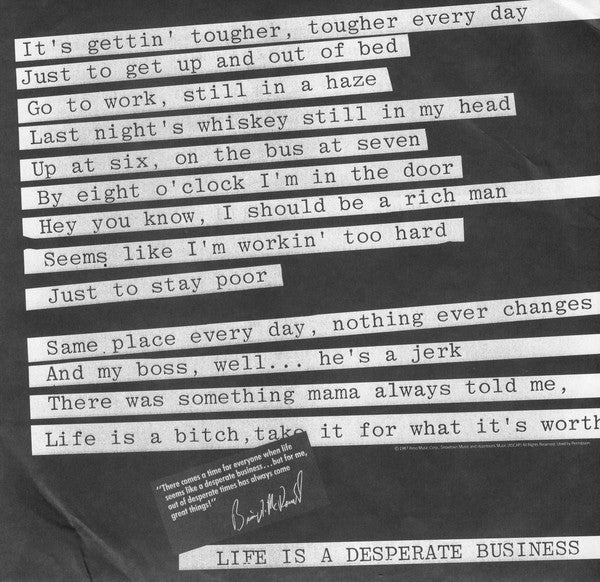 It's gettin' tougher, tougher every day
Just to get up and out of bed
Go to work, still in a haze
Last night's whiskey still in my head
Up at six, on the bus at seven
By eight o'clock I'm in the door
Hey you know, I should be a rich man
Seems like I'm workin' too hard
Just to stay poor
Same place every day, nothing ever changes
And my boss, well... he's a jerk
There was something mama always told me,
Life is a bitch,take it for what it's worth
© 1987 Music Corp., Music and Music (ASCAP) All Rights Reserved. Used by Permission.
"There comes a time for everyone when life
seems like a desperate business...but for me,
out of desperate times has always come
great things!"
LIFE IS A DESPERATE BUSINESS